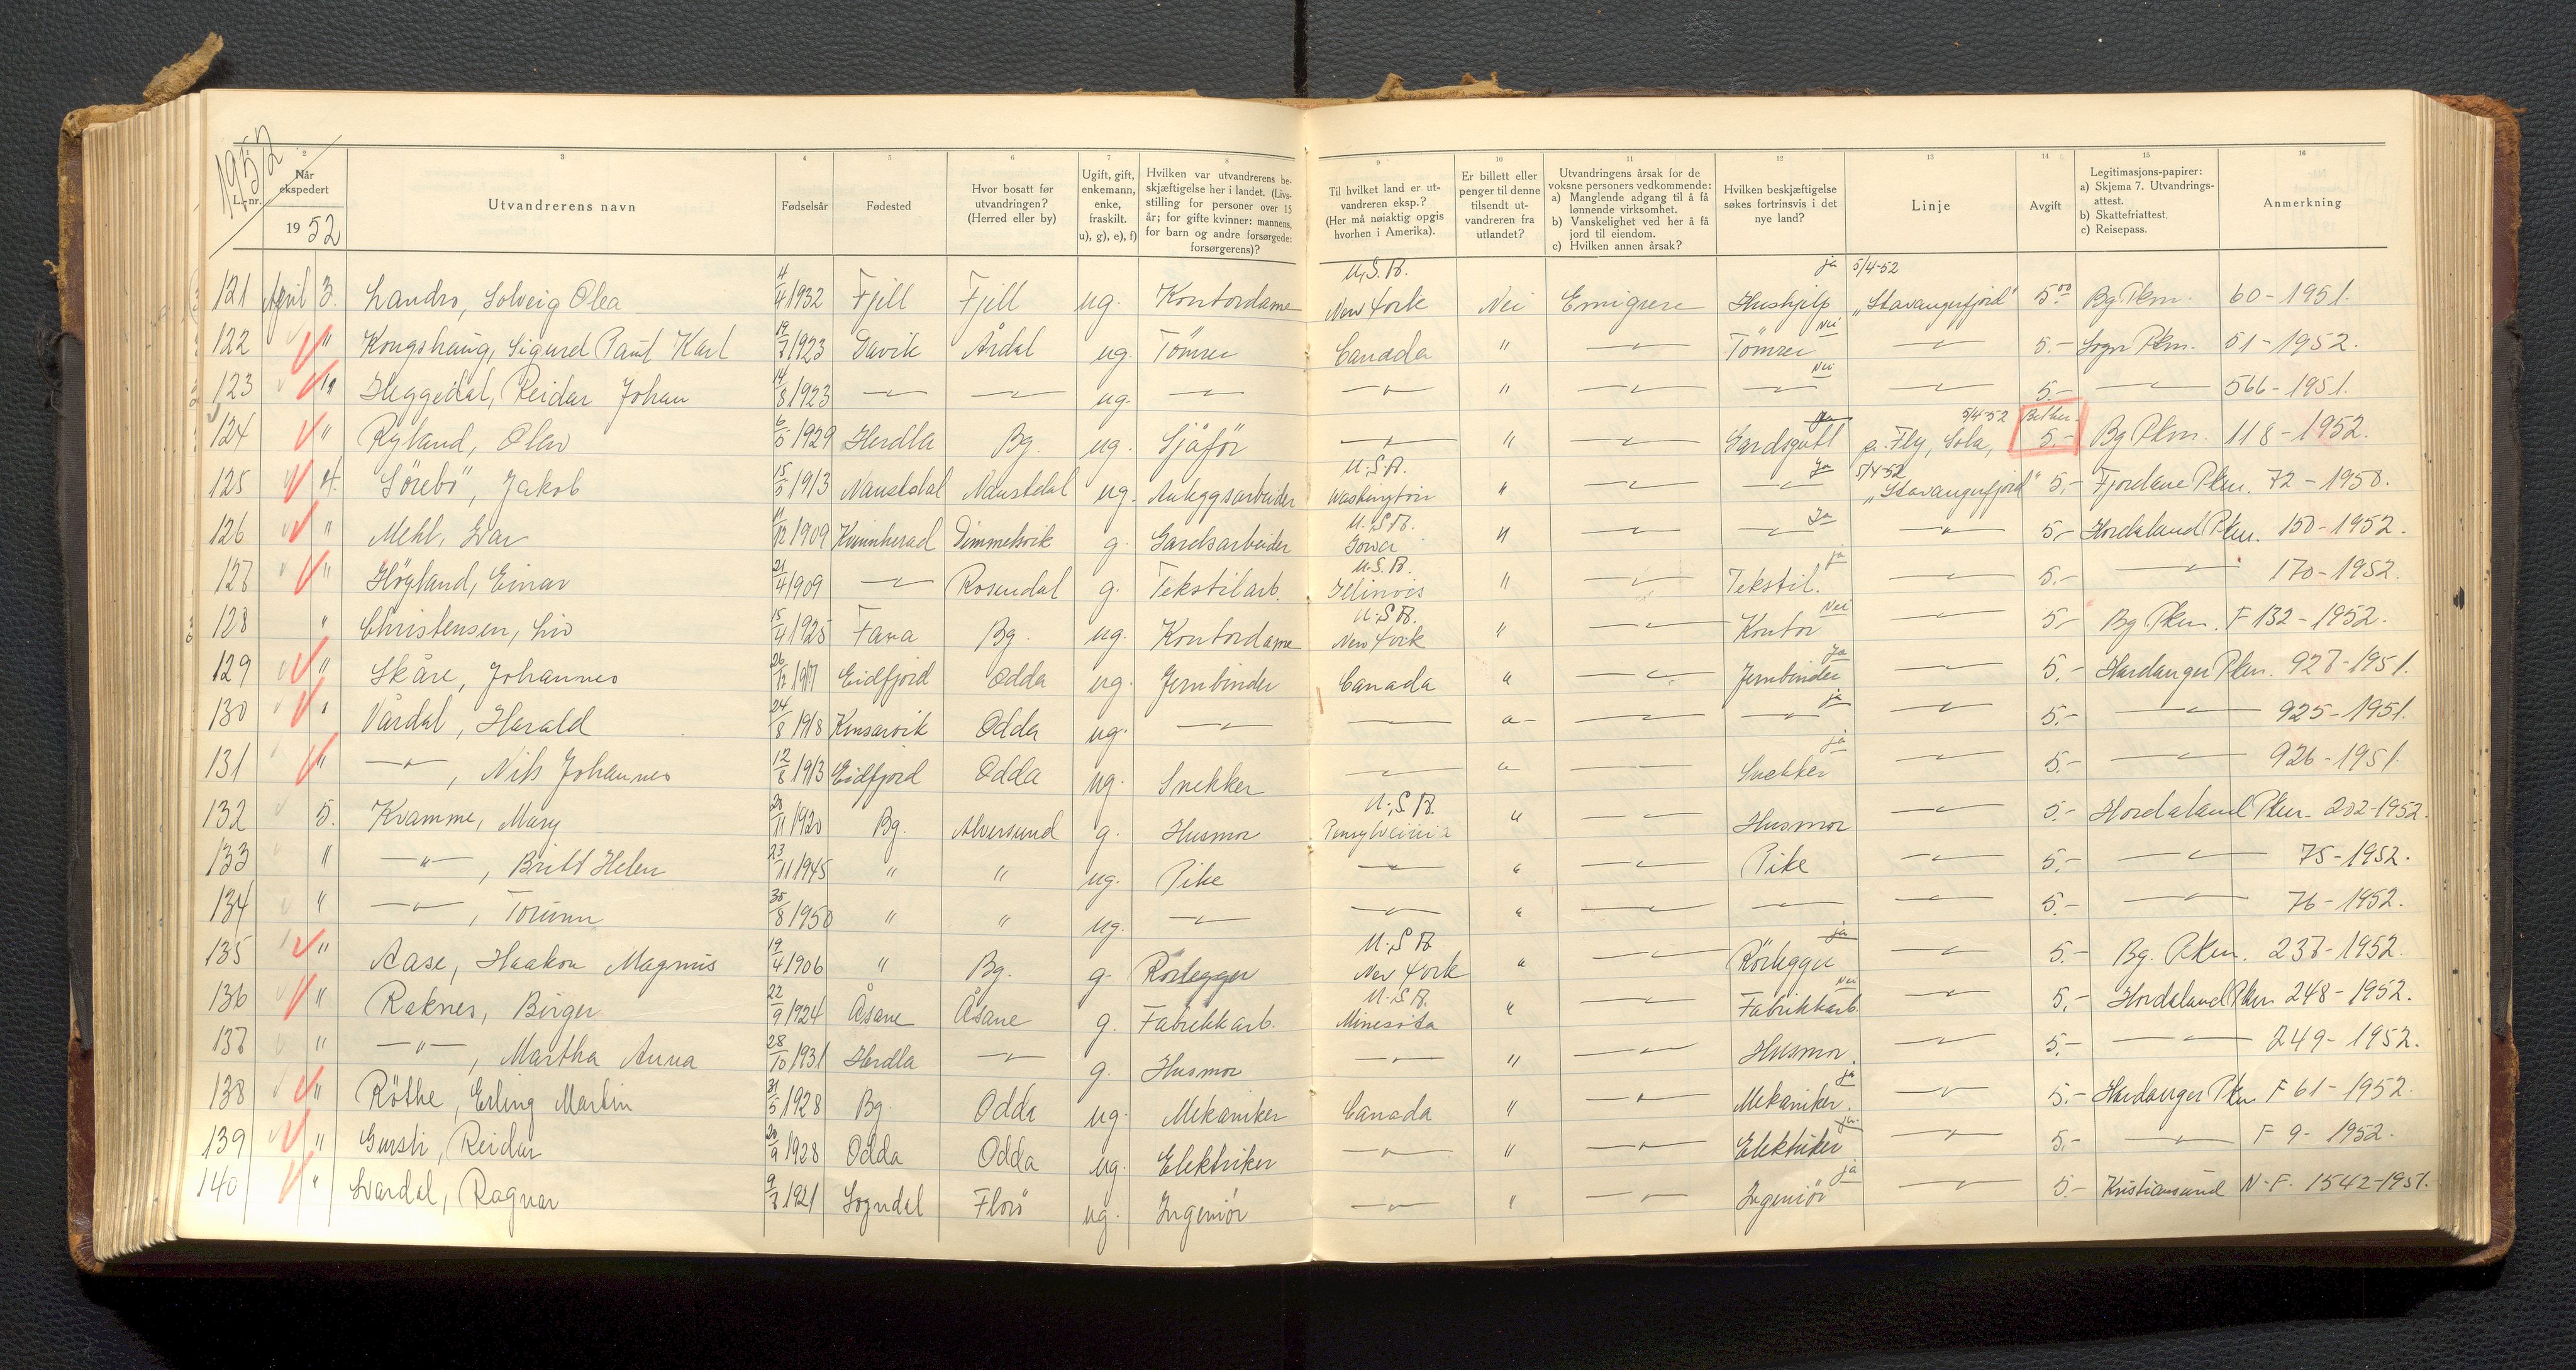 1952
1 2 3 4 5 6 7 8 9 10 11 12 13 14 15 16
L.-nr. Når ekspedert 1952 Utvandrerens navn Fødselsår Fødested Hvor bosatt før utvandringen? (Herred eller by) Ugift, gift, enkemann, enke, fraskilt. u), g), e), f) Hvilken var utvandrerens beskjæftigelse her i landet. (Livsstilling for personer over 15 år; for gifte kvinner: mannens, for barn og andre forsørgede: forsørgerens)? Til hvilket land er utvandreren eksp.? (Her må nøiaktig opgis hvorhen i Amerika). Er billett eller penger til denne tilsendt utvandreren fra utlandet? Utvandringens årsak for de voksne personers vedkommende: a) Manglende adgang til å få lønnende virksomhet. b) Vanskelighet ved her å få jord til eiendom. c) Hvilken annen årsak? Hvilken beskjæftigelse søkes fortrinsvis i det nye land? Linje Avgift Legitimasjons-papirer: a) Skjema 7. Utvandringsattest. b) Skattefriattest. c) Reisepass. Anmerkning
121 April 3. Landro, Solveig Olea 4/4 1932 Fjell Fjell ug. Kontordame U.S.A. New York Nei Emigrere Hushjelp ja 5/4-52 "Stavangerfjord" 5.00 Bg Pkm. 60-1951.
122 " Kongshaug, Sigurd Paul Karl 19/7 1923 Davik Årdal ug. Tömrer Canada " —"— Tömrer Nei —"— 5.- Sogn Pkm. 51-1952.
123 " Heggedal, Reidar Johan 14/8 1923 —"— —"— ug. —"— —"— " —"— —"— Nei —"— 5.- —"— 566-1951.
124 " Ryland, Olav 6/5 1929 Herdla Bg. ug. Sjåför —"— " —"— Gardsgutt Ja 5/4-52 p. Fly, Sola, 5.- Bg Pkm. 118-1952.
125 4. Sörebö, Jakob 15/5 1913 Naustdal Naustdal ug. Anleggsarbeider U.S.A. Washington " —"— —"— Ja 5/4-52 "Stavangerfjord" 5.- Fjordane Pkm. 72-1950.
126 " Mehl, Ivar 11/12 1909 Kvinnherad Dimmelsvik g. Gardsarbeider U.S.A. Iowa " —"— —"— Ja —"— 5.- Hordaland Pkm. 150-1952.
127 " Höyland, Einar 21/4 1909 —"— Rosendal g. Tekstilarb. U.S.A. Illinois " —"— Tekstil. ja —"— 5.- —"— 170-1952.
128 " Christensen, Liv 15/4 1925 Fana Bg. ug. Kontordame U.S.A. New York " —"— Kontor Nei —"— 5.- Bg Pkm. F 132-1952.
129 " Skåre, Johannes 26/12 1917 Eidfjord Odda ug. Jernbinder Canada " —"— Jernbinder Ja —"— 5.- Hardanger Pkm. 927-1951.
130 " Vårdal, Harald 24/8 1918 Kinsarvik Odda ug. —"— —"— " —"— —"— ja —"— 5.- —"— 925-1951.
131 " —"—, Nils Johannes 12/8 1913 Eidfjord Odda ug. Snekker —"— " —"— Snekker ja —"— 5.- —"— 926-1951.
132 5. Kvamme, Mary 20/11 1920 Bg. Alversund g. Husmor U.S.A. Pensylvania " —"— Husmor —"— 5.- Hordaland Pkm. 202-1952.
133 " —"—, Britt Helen 23/11 1945 " " ug. Pike —"— " —"— Pike —"— 5.- —"— 75-1952.
134 " —"—, Torunn 30/8 1950 " " ug. —"— —"— " —"— —"— —"— 5.- —"— 76-1952.
135 " Aase, Haakon Magnus 19/4 1906 " Bg. g. Rörlegger U.S.A. New York " —"— Rörlegger ja —"— 5.- Bg. Pkm. 237-1952.
136 " Raknes, Birger 22/9 1924 Åsane Åsane g. Fabrikkarb. U.S.A. Minesota " —"— Fabrikkarb Nei —"— 5.- Hordaland Pkm 248-1952.
137 " —"—, Martha Anna 28/10 1931 Herdla —"— g. Husmor —"— " —"— Husmor. —"— 5.- —"— 249-1952.
138 " Röthe, Erling Martin 31/5 1928 Bg. Odda ug. Mekaniker Canada " —"— Mekaniker. ja —"— 5.- Hardanger Pkm F 61-1952.
139 " Reidar 20/9 1928 Odda Odda ug. Elektriker —"— " —"— Elektriker ja —"— 5.- —"— F 9-1952.
140 " Ragnar 9/7 1921 Sogndal Florö ug. Ingeniör —"— " —"— Ingeniör ja —"— 5.- Kristiansund N-F. 1542-1951.